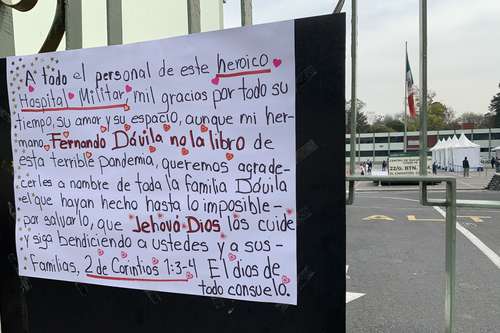 A todo el personal de este heroico
Hospital Militar, mil gracias por todo su
tiempo, su amor y su espacio, aunque mi her-
mano Fernando Dávila no la libro de
esta terrible pandemia, queremos agrade-
cerles a nombre de toda la Familia Dávila
el que hayan hecho hasta lo imposible-
por salvarlo, que Jehová Dios los cuide
y siga bendiciendo a ustedes y a sus-
Familias, 2 de Corintios 1:3-4 El dios de
todo consuelo.
22/o. BTN.
ALTO